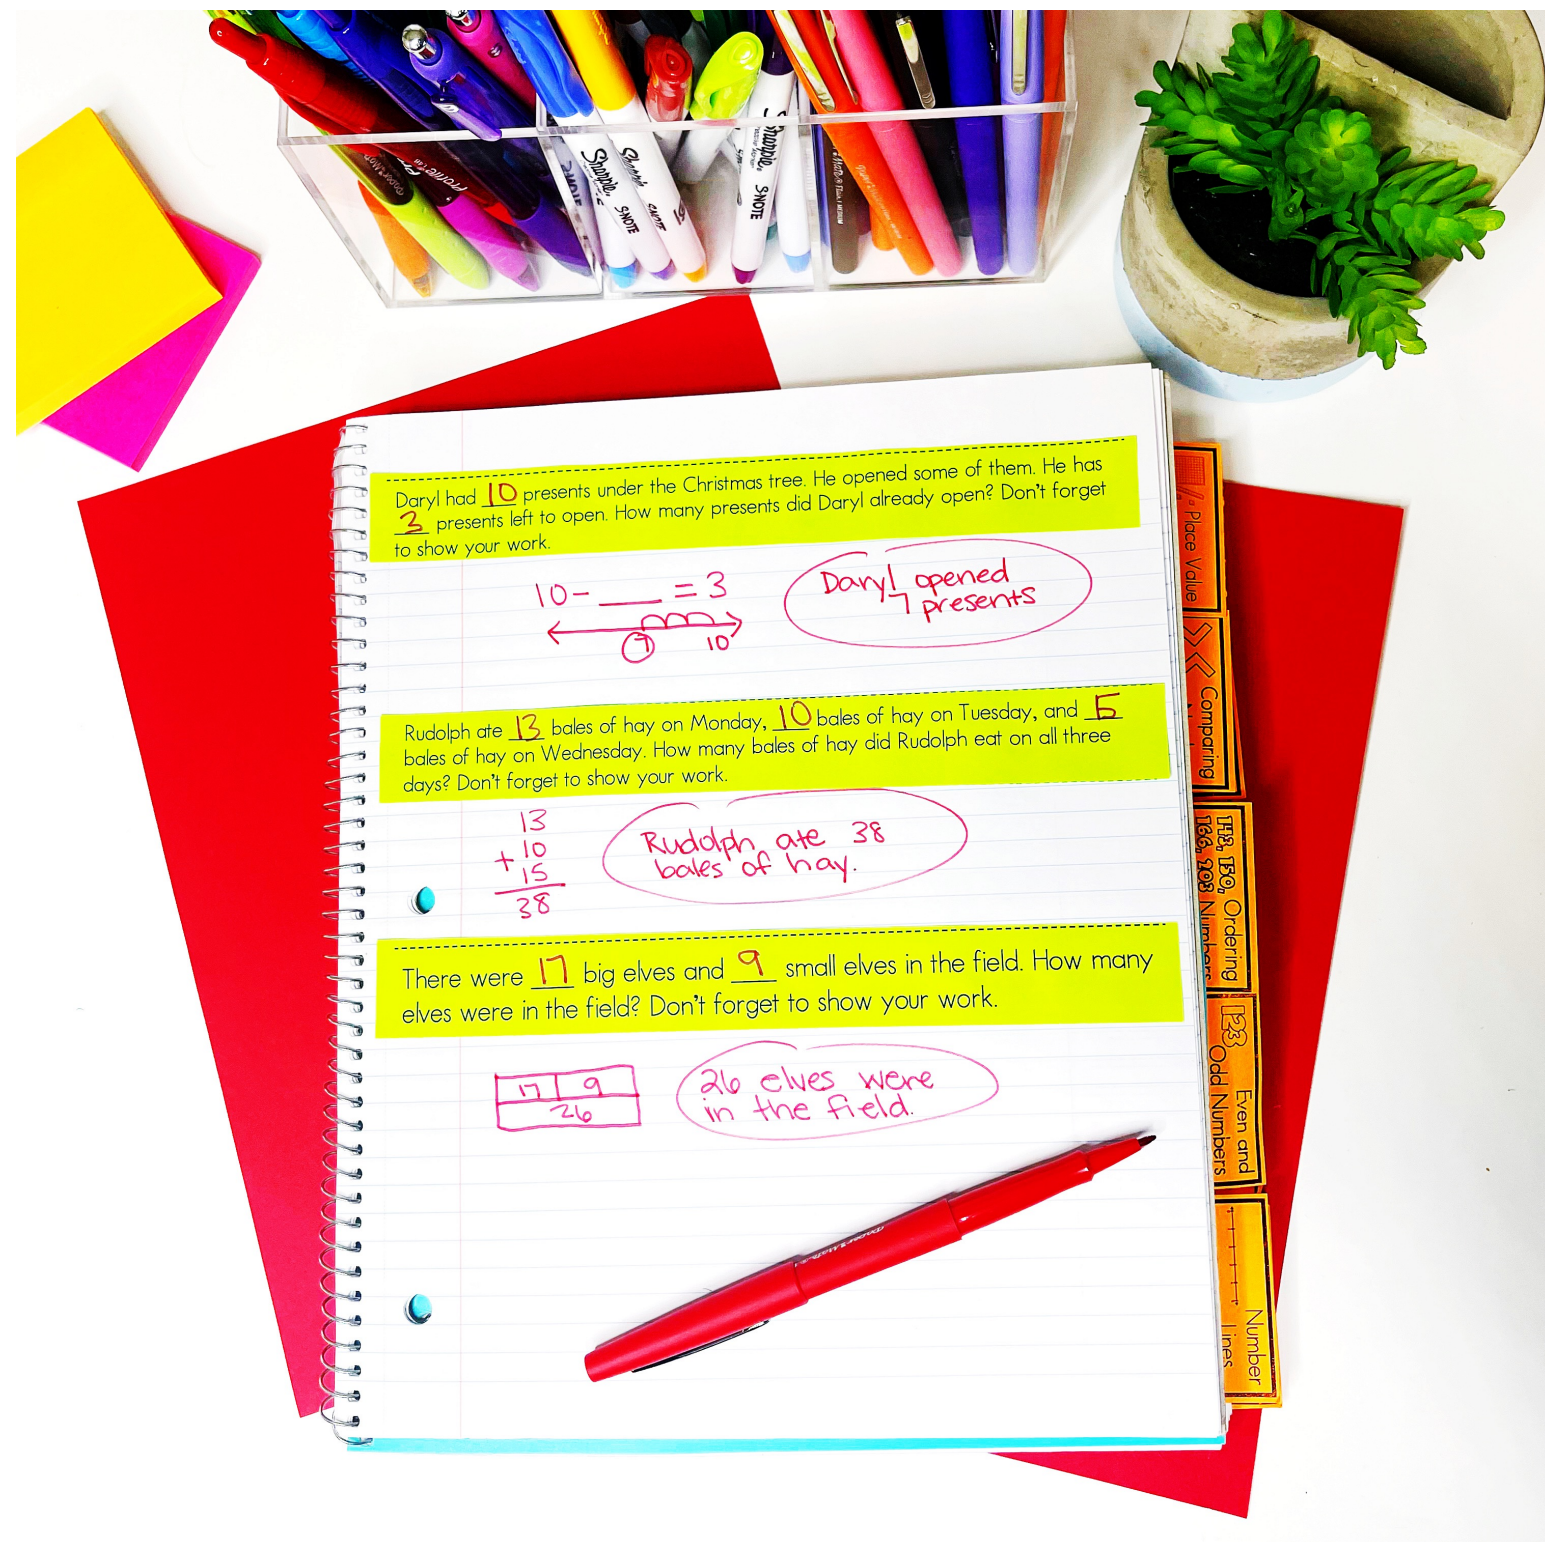 Sharpie
S·NOTE
Sharpie
S·NOTE
Sharpie
S·NOTE
Profile
Daryl had 10 presents under the Christmas tree. He opened some of them. He has
3 presents left to open. How many presents did Daryl already open? Don't forget
to show your work.
10 - ___ = 3
7 10
Daryl opened
7 presents
Rudolph ate 13 bales of hay on Monday, 10 bales of hay on Tuesday, and
bales of hay on Wednesday. How many bales of hay did Rudolph eat on all three
days? Don't forget to show your work.
13
10
+ 15
38
Rudolph ate 38
bales of hay.
There were 17 big elves and 9 small elves in the field. How many
elves were in the field? Don't forget to show your work.
17 9
26
26 elves were
in the field.
Place Value
Comparing
143, 150, Ordering
166, 203 Numbers
123 Even and
Odd Numbers
Number
Lines